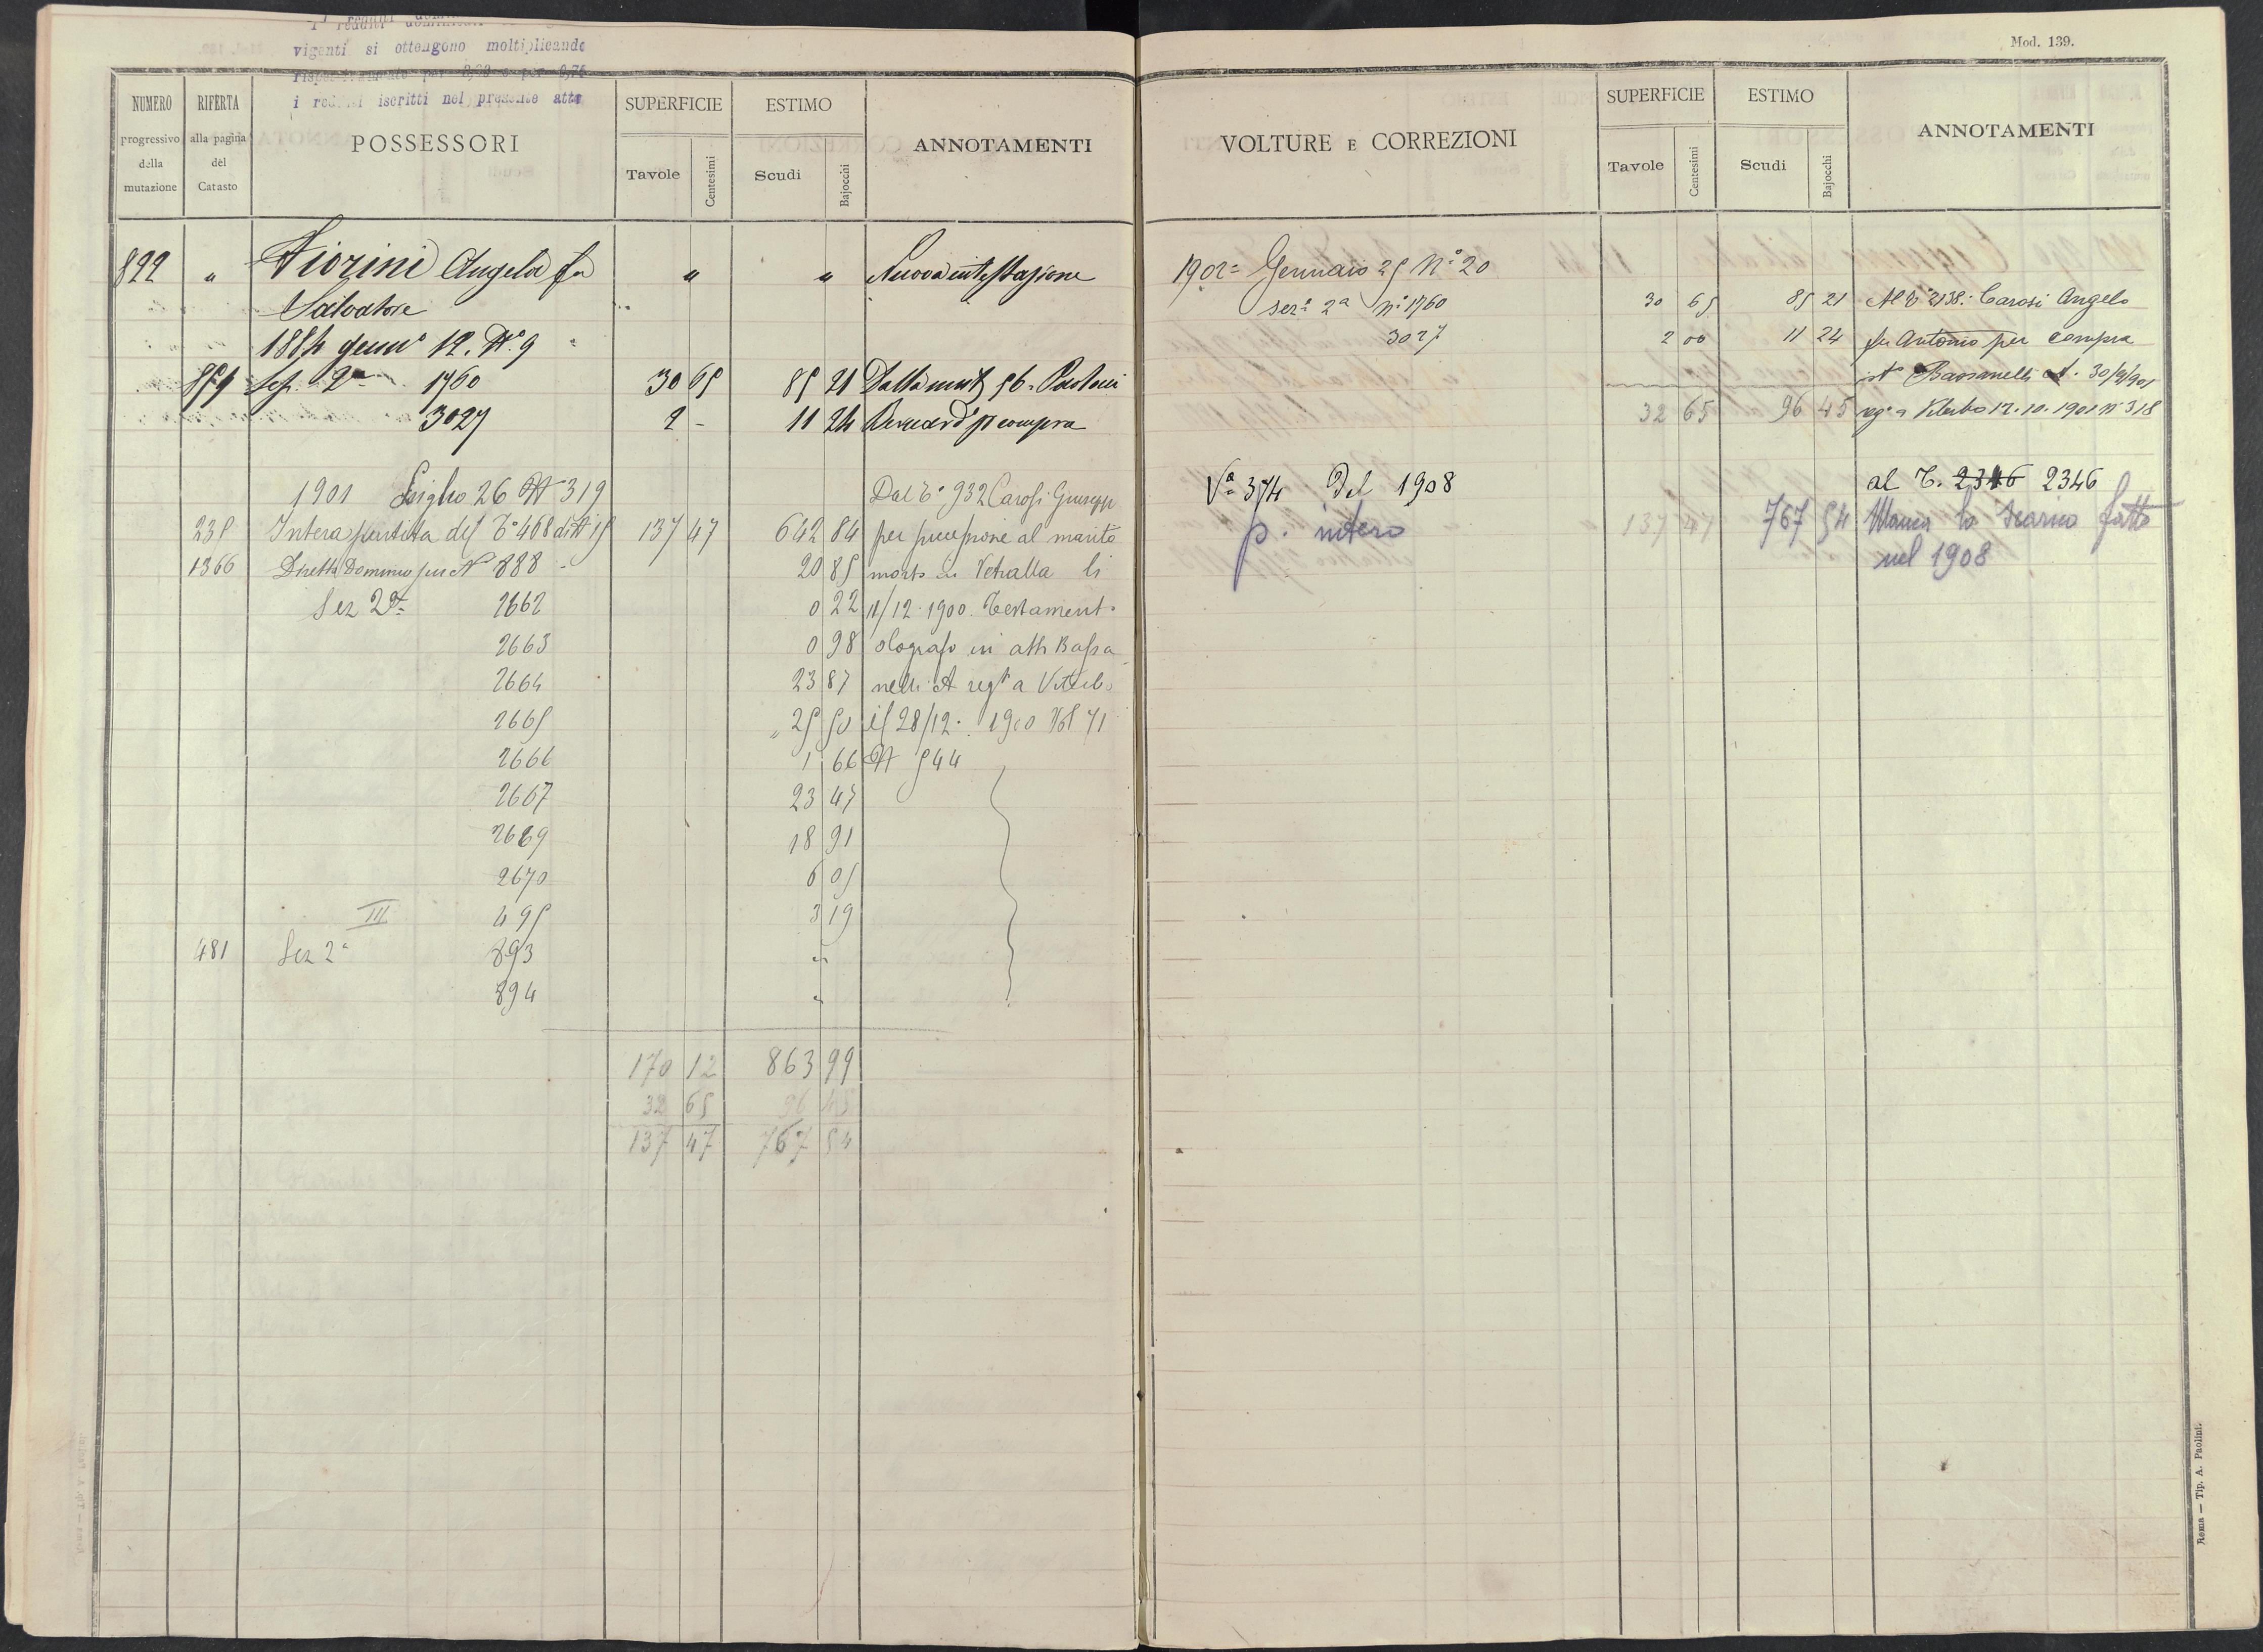 I redditi
vigenti si ottengono moltiplicando
per 0,75
i redditi iscritti nel presente atto
Mod. 139.
NUMERO progressivo della mutazione
RIFERTA alla pagina del Catasto
POSSESSORI
SUPERFICIE
Tavole Centesimi
ESTIMO
Scudi Bajocchi
ANNOTAMENTI
822 " Fiorini Angela fu " " Nuova intestazione
Salvatore
1884 genn° 12. N° 9
Sez. 2ª 1760 30 65 85 21 Dalla mut 56
3027 2 - 11 24 compra
1901 Luglio 26 N 319 Dal T° 932 Carosi Giuseppe
235 Intera partita del T° 468 di N 15 137 47 642 84 per successione al marito
1366 Diretto Dominio sui N 888 20 85 morto in Vetralla li
Sez 2ª 2662 0 22 11/12 1900. Testament°
2663 0 98 olografo in atti Bassa
2664 23 87 nelli A regt° a Viterbo
2665 " 25 50 il 28/12. 1900 Vol 71
2666 1 66 N 544
2667 23 47
2669 18 91
2670 6 05
III 495 3 19
481 Sez 2ª 893 "
894 "
170 12 863 99
32 65 96 45
137 47 767 54
VOLTURE E CORREZIONI
SUPERFICIE
Tavole Centesimi
ESTIMO
Scudi Bajocchi
ANNOTAMENTI
1902= Gennaio 25 N° 20
sez° 2ª n° 1760 30 65 85 21 Al T° 2138: Carosi Angelo
3027 2 00 11 24 fu Antonio per compra
ist° Bassanelli A. 30/9/901
32 65 96 45 reg° a Viterbo 12.10.1901 n° 318
Vª 374 Del 1908 al T. 2346 2346
p. intero 137 47 767 54 Manca lo scarico fatto
nel 1908
Roma — Tip. A. Paolini.